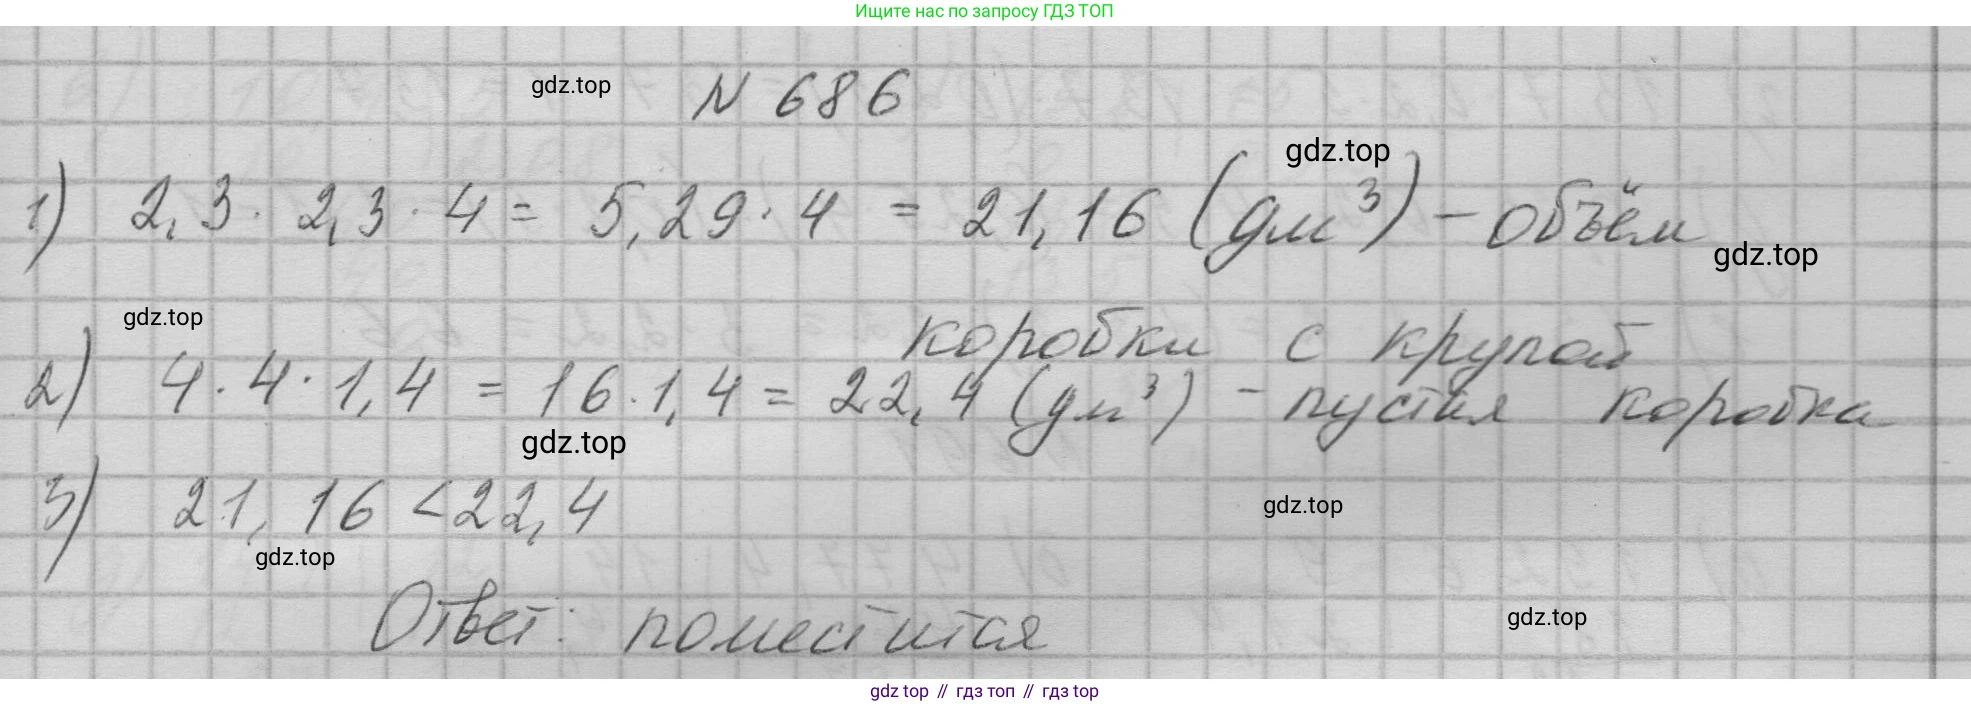 Ищите нас по запросу ГДЗ ТОП
gdz.top
N 686
gdz.top
1) 2,3 · 2,3 · 4 = 5,29 · 4 = 21,16 (дм³) – объём
gdz.top
gdz.top
коробки с крупой
2) 4 · 4 · 1,4 = 16 · 1,4 = 22,4 (дм³) – пустая коробка
gdz.top
3) 21,16 < 22,4
gdz.top
gdz.top
Ответ: поместится
gdz.top
gdz top // гдз топ // гдз top